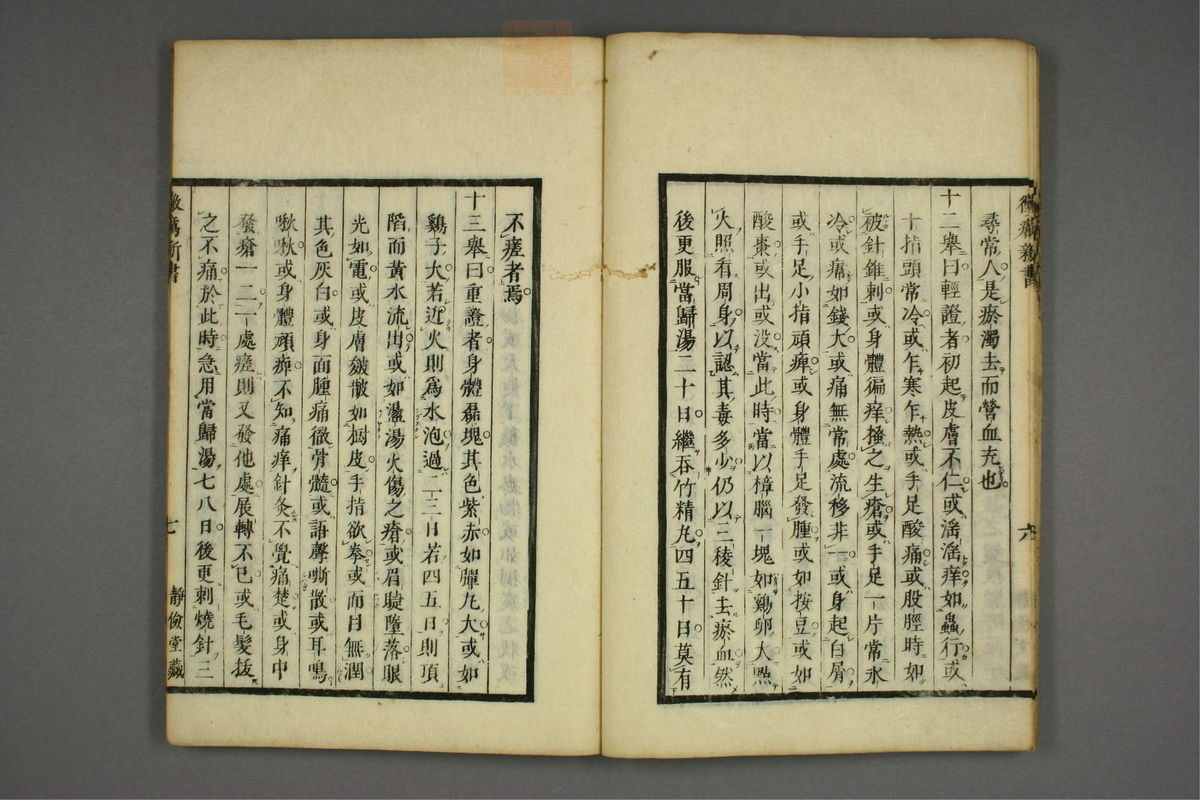 尋常人是瘀濁去而營血充也
十二舉曰輕證者初起皮膚不仁或滛滛痒如蟲行或
十指頭常冷或乍寒乍熱或手足酸痛或股脛時如
被針錐刺或身體徧痒搔之生瘡或手足一片常氷
冷或痛如錢大或痛無常處流移非一或身起白屑
或手足小指頑痺或身體手足發腫或如按豆或如
酸棗或出或没當此時當以樟腦一塊如鷄卵大點
火照看周身以認其毒多少仍以三稜針去瘀血然
後更服當歸湯二十日繼吞竹精丸四五十日莫有
六
不瘥者焉
十三舉曰重證者身體磊塊其色紫赤如彈丸大或如
鷄子大若近火則爲水泡過二三日若四五日則頂
陷而黄水流出或如湯火傷之瘡或眉睫墮落眼
光如電或皮膚皴皵如樹皮手指欲拳或面目無潤
其色灰白或身面腫痛徹骨髓或語聲嘶散或耳鳴
啾啾或身體頑痺不知痛痒針灸不覺痛楚或身中
發瘡一二處瘥則又發他處展轉不已或毛髮拔
之不痛於此時急用當歸湯七八日後更刺燒針三
新書
七
靜儉堂藏